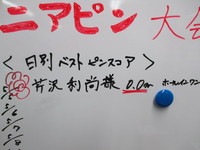 ニアピン 大会
〈日別ベストピンスコア〉
5/5 芹沢利尚様 0.0m ホールインワン
5/6
5/7